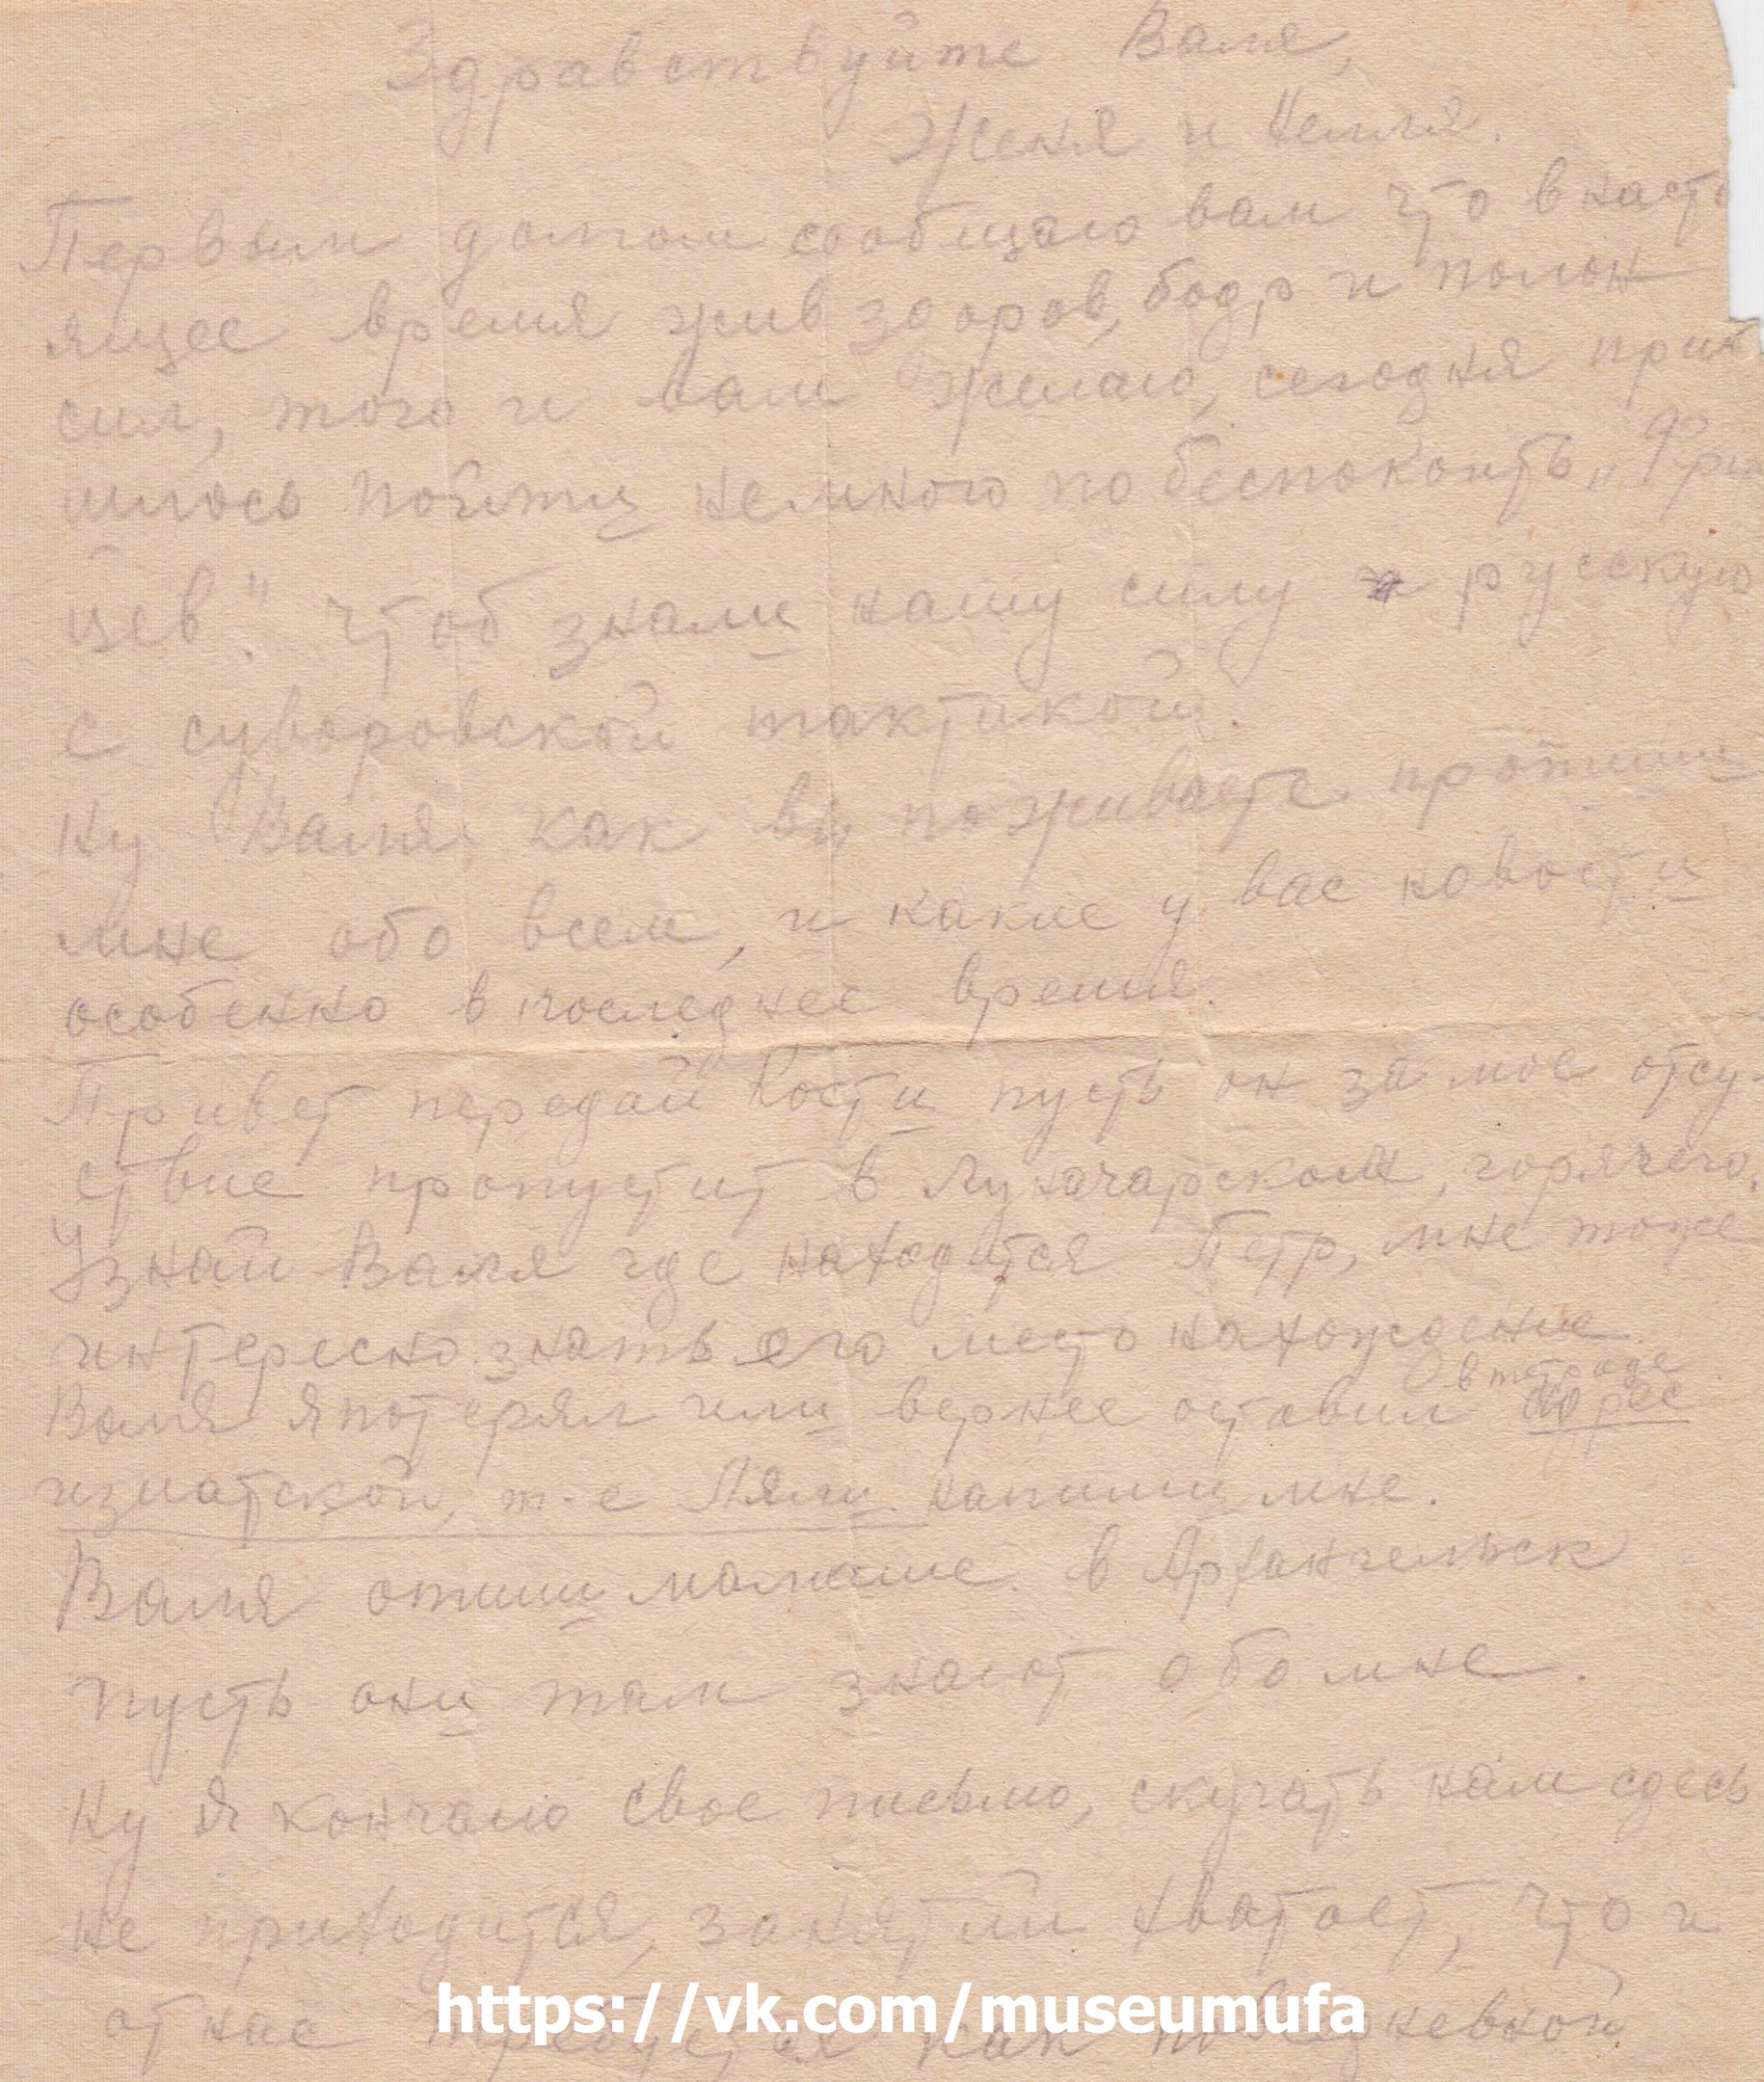 Здравствуйте Валя,
Женя и Нелля.
Первым долгом сообщаю вам что в насто
ящее время жив здоров, бодр и полон
сил, того и вам желаю, сегодня при
шлось пойти немного побеспокоить „Фри
цев". Чтоб знали нашу силу русскую
с суворовской тактикой.
Ну Валя, как вы поживаете пропиши
мне обо всем, и какие у вас новости
особенно в последнее время.
Привет передай Кости пусть он за мое отсу-
ствие пропустит в Луначарском, горячего.
Узнай Валя где находится Петр, мне тоже
интересно знать его место нахождение
в тетраде
Валя я потерял или вернее оставил адрес
т-е Ляли. напиши мне.
Валя отпиши мамаше в Архангельск
пусть они там знают обо мне.
Ну я кончаю свое письмо, скучать нам сдесь
не приходится, занятий хватает, что и
от нас требуется как повседневной
https://vk.com/museumufa